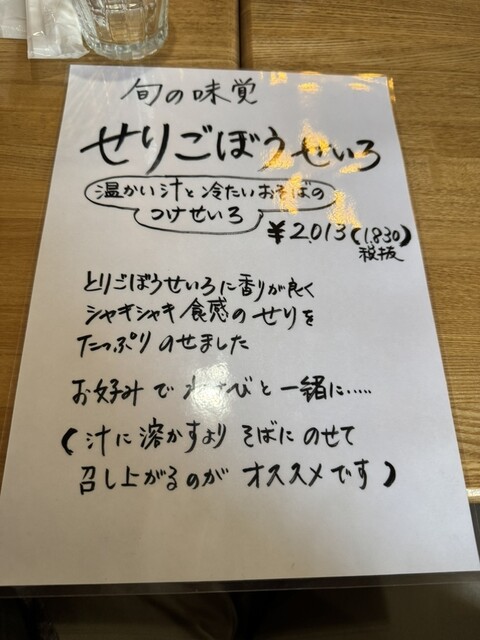 旬の味覚
せりごぼうせいろ
温かい汁と冷たいおそばの
つけせいろ
¥2,013(1,830)
税抜
とりごぼうせいろに香りが良く
シャキシャキ食感のせりを
たっぷりのせました
お好みでわさびと一緒に.....
(汁に溶かすよりそばにのせて
召し上がるのがオススメです)